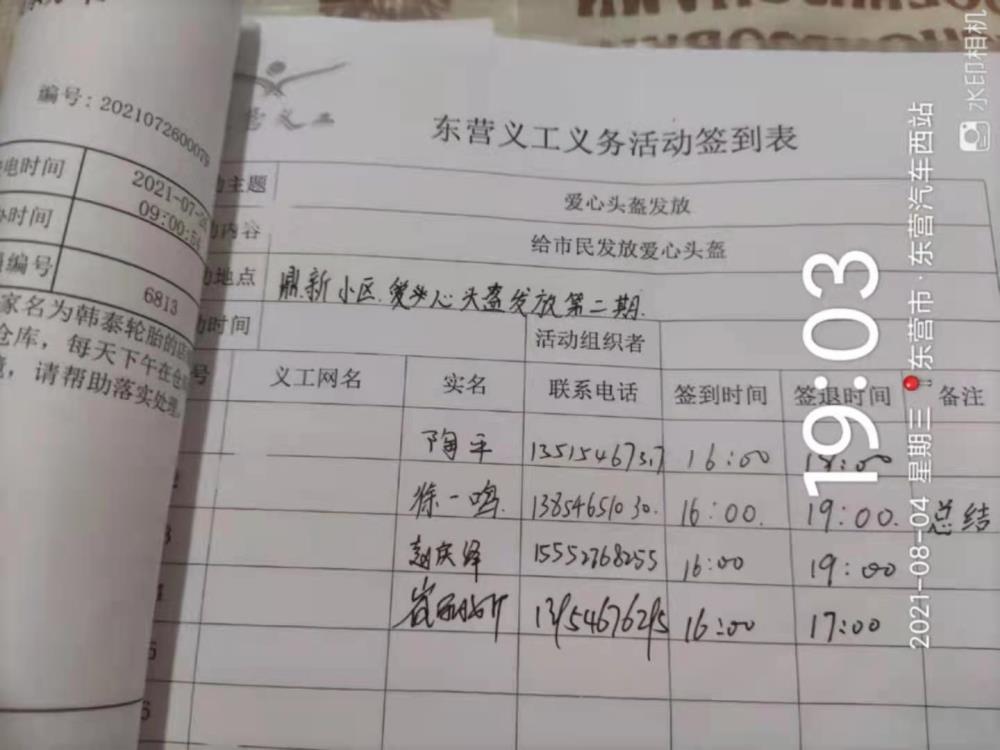 编号：2021072600079
电时间
2021-07-26
09:00:54
时间
编号
6813
家名为韩泰轮胎的店
仓库，每天下午在仓
，请帮助落实处理
营义工
东营义工义务活动签到表
主题 爱心头盔发放
内容 给市民发放爱心头盔
动地点 鼎新小区.爱心头盔发放第二期.
动时间 活动组织者
号 义工网名 实名 联系电话 签到时间 签退时间 备注
陶平 16:00 18:00
徐一鸣 13854651030. 16:00. 19:00. 总结
赵庆泽 15552768255 16:00 19:00
4 崔 13954676295 16:00 17:00
5
6
19:03
2021-08-04 星期三 东营市·东营汽车西站
水印相机